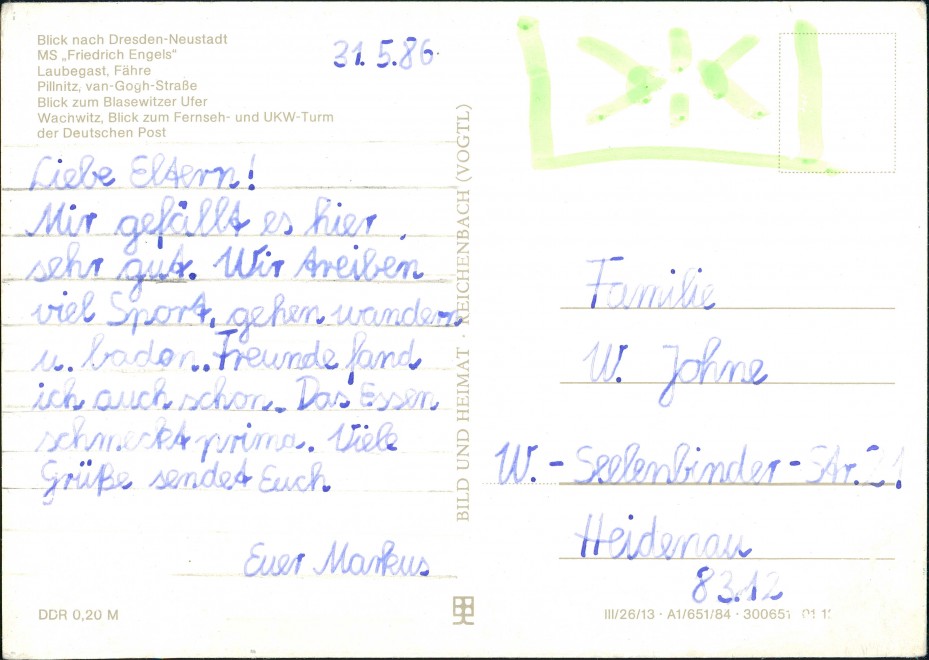 Blick nach Dresden-Neustadt
MS „Friedrich Engels“
Laubegast, Fähre
Pillnitz, van-Gogh-Straße
Blick zum Blasewitzer Ufer
Wachwitz, Blick zum Fernseh- und UKW-Turm
der Deutschen Post
31.5.86
Liebe Eltern!
Mir gefällt es hier
sehr gut. Wir treiben
viel Sport, gehen wandern
u. baden. Freunde fand
ich auch schon. Das Essen
schmeckt prima. Viele
Grüße sendet Euch
Euer Markus
DDR 0,20 M
BILD UND HEIMAT · REICHENBACH (VOGTL)
Familie
W. Johne
W.-Seelenbinder-Str. 21
Heidenau
8312
III/26/13 · A1/651/84 · 30065